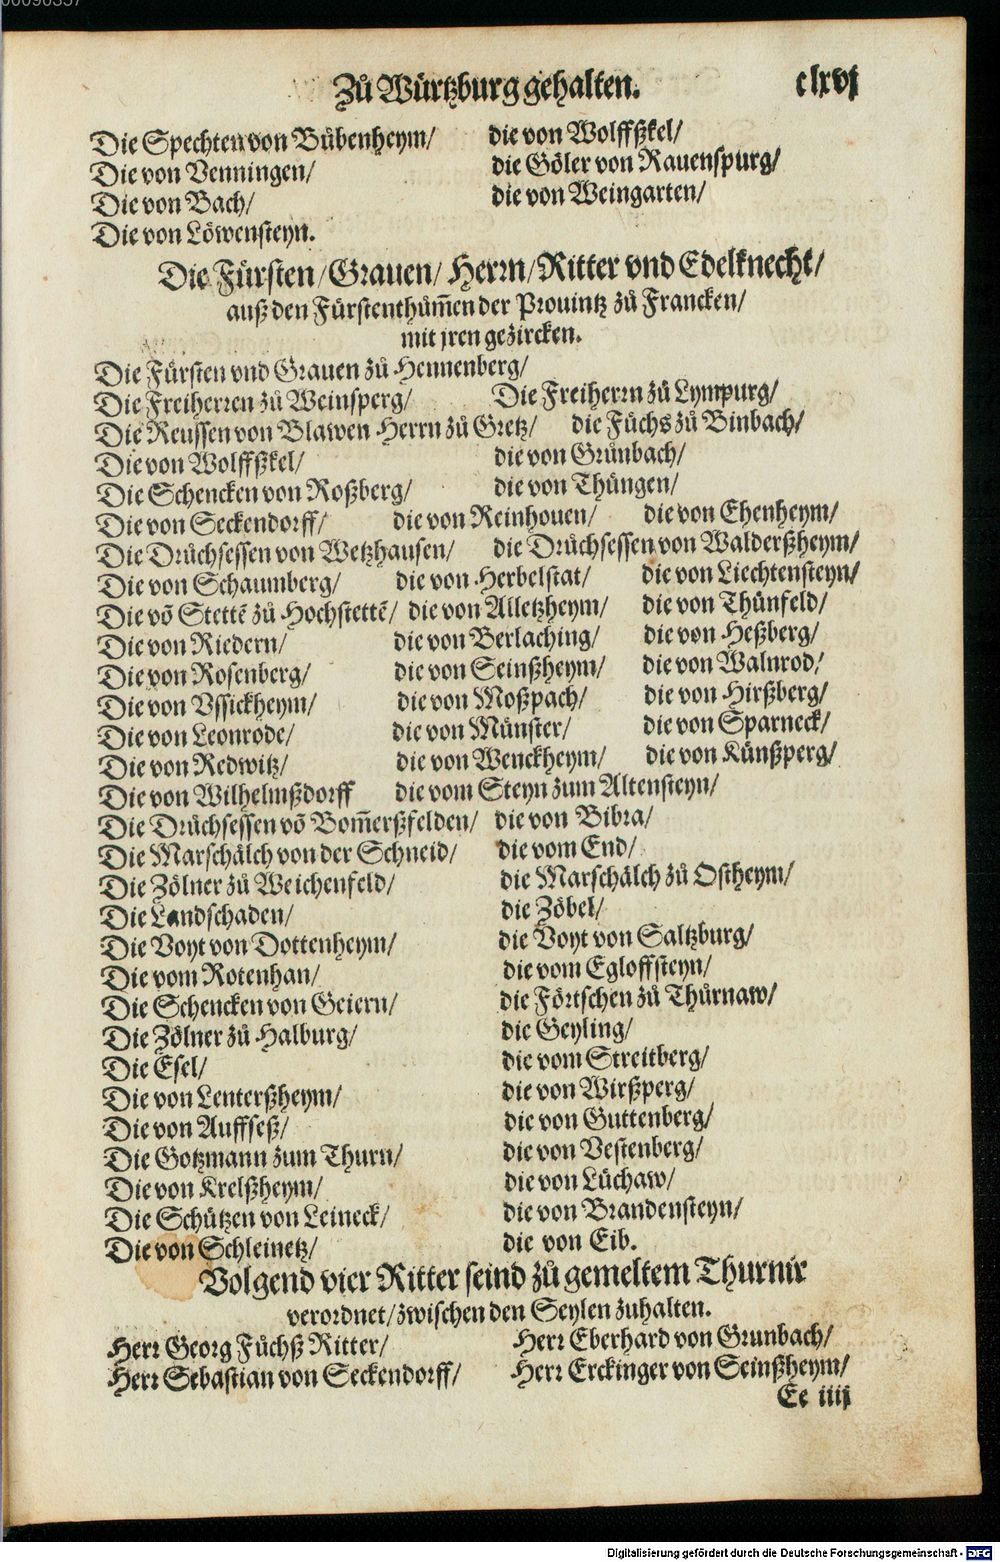 Zů Würtzburg gehalten. clxvj
Die Spechten von Bůbenheym/ die von Wolffßkel/
Die von Venningen/ die Göler von Rauenspurg/
Die von Bach/ die von Weingarten/
Die von Löwensteyn.
Die Fürsten/Grauen/ Herrn/Ritter vnd Edelknecht/
auß den Fürstenthům̃en der Prouintz zů Francken/
mit jren gezircken.
Die Fürsten vnd Grauen zů Hennenberg/
Die Freiherren zů Weinsperg/ Die Freiherrn zů Lympurg/
Die Reussen von Blawen Herrn zů Gretz/ die Füchs zů Binbach/
Die von Wolffßkel/ die von Grůnbach/
Die Schencken von Roßberg/ die von Thüngen/
Die von Seckendorff/ die von Reinhouen/ die von Ehenheym/
Die Drůchsessen von Wetzhausen/ die Drůchsessen von Walderßheym/
Die von Schaumberg/ die von Herbelstat/ die von Liechtensteyn/
Die võ Stettẽ zů Hochstettẽ/ die von Alletzheym/ die von Thünfeld/
Die von Riedern/ die von Berlaching/ die von Heßberg/
Die von Rosenberg/ die von Seinßheym/ die von Walnrod/
Die von Vssickheym/ die von Moßpach/ die von Hirßberg/
Die von Leonrode/ die von Münster/ die von Sparneck/
Die von Redwitz/ die von Wenckheym/ die von Künßperg/
Die von Wilhelmßdorff die vom Steyn zum Altensteyn/
Die Drůchsessen võ Bom̃erßfelden/ die von Bibra/
Die Marschälch von der Schneid/ die vom End/
Die Zölner zů Weichenfeld/ die Marschälch zů Ostheym/
Die Landschaden/ die Zöbel/
Die Voyt von Dottenheym/ die Voyt von Saltzburg/
Die vom Rotenhan/ die vom Egloffsteyn/
Die Schencken von Geiern/ die Förtschen zů Thůrnaw/
Die Zölner zů Halburg/ die Geyling/
Die Esel/ die vom Streitberg/
Die von Lenterßheym/ die von Wirßperg/
Die von Auffseß/ die von Guttenberg/
Die Gotzmann zum Thurn/ die von Vestenberg/
Die von Krelßheym/ die von Lüchaw/
Die Schützen von Leineck/ die von Brandensteyn/
Die von Schleinetz/ die von Eib.
Volgend vier Ritter seind zů gemeltem Thurnir
verordnet/zwischen den Seylen zuhalten.
Herr Georg Füchß Ritter/ Herr Eberhard von Grunbach/
Herr Sebastian von Seckendorff/ Herr Erckinger von Seinßheym/
Ee iiij
Digitalisierung gefördert durch die Deutsche Forschungsgemeinschaft - DFG